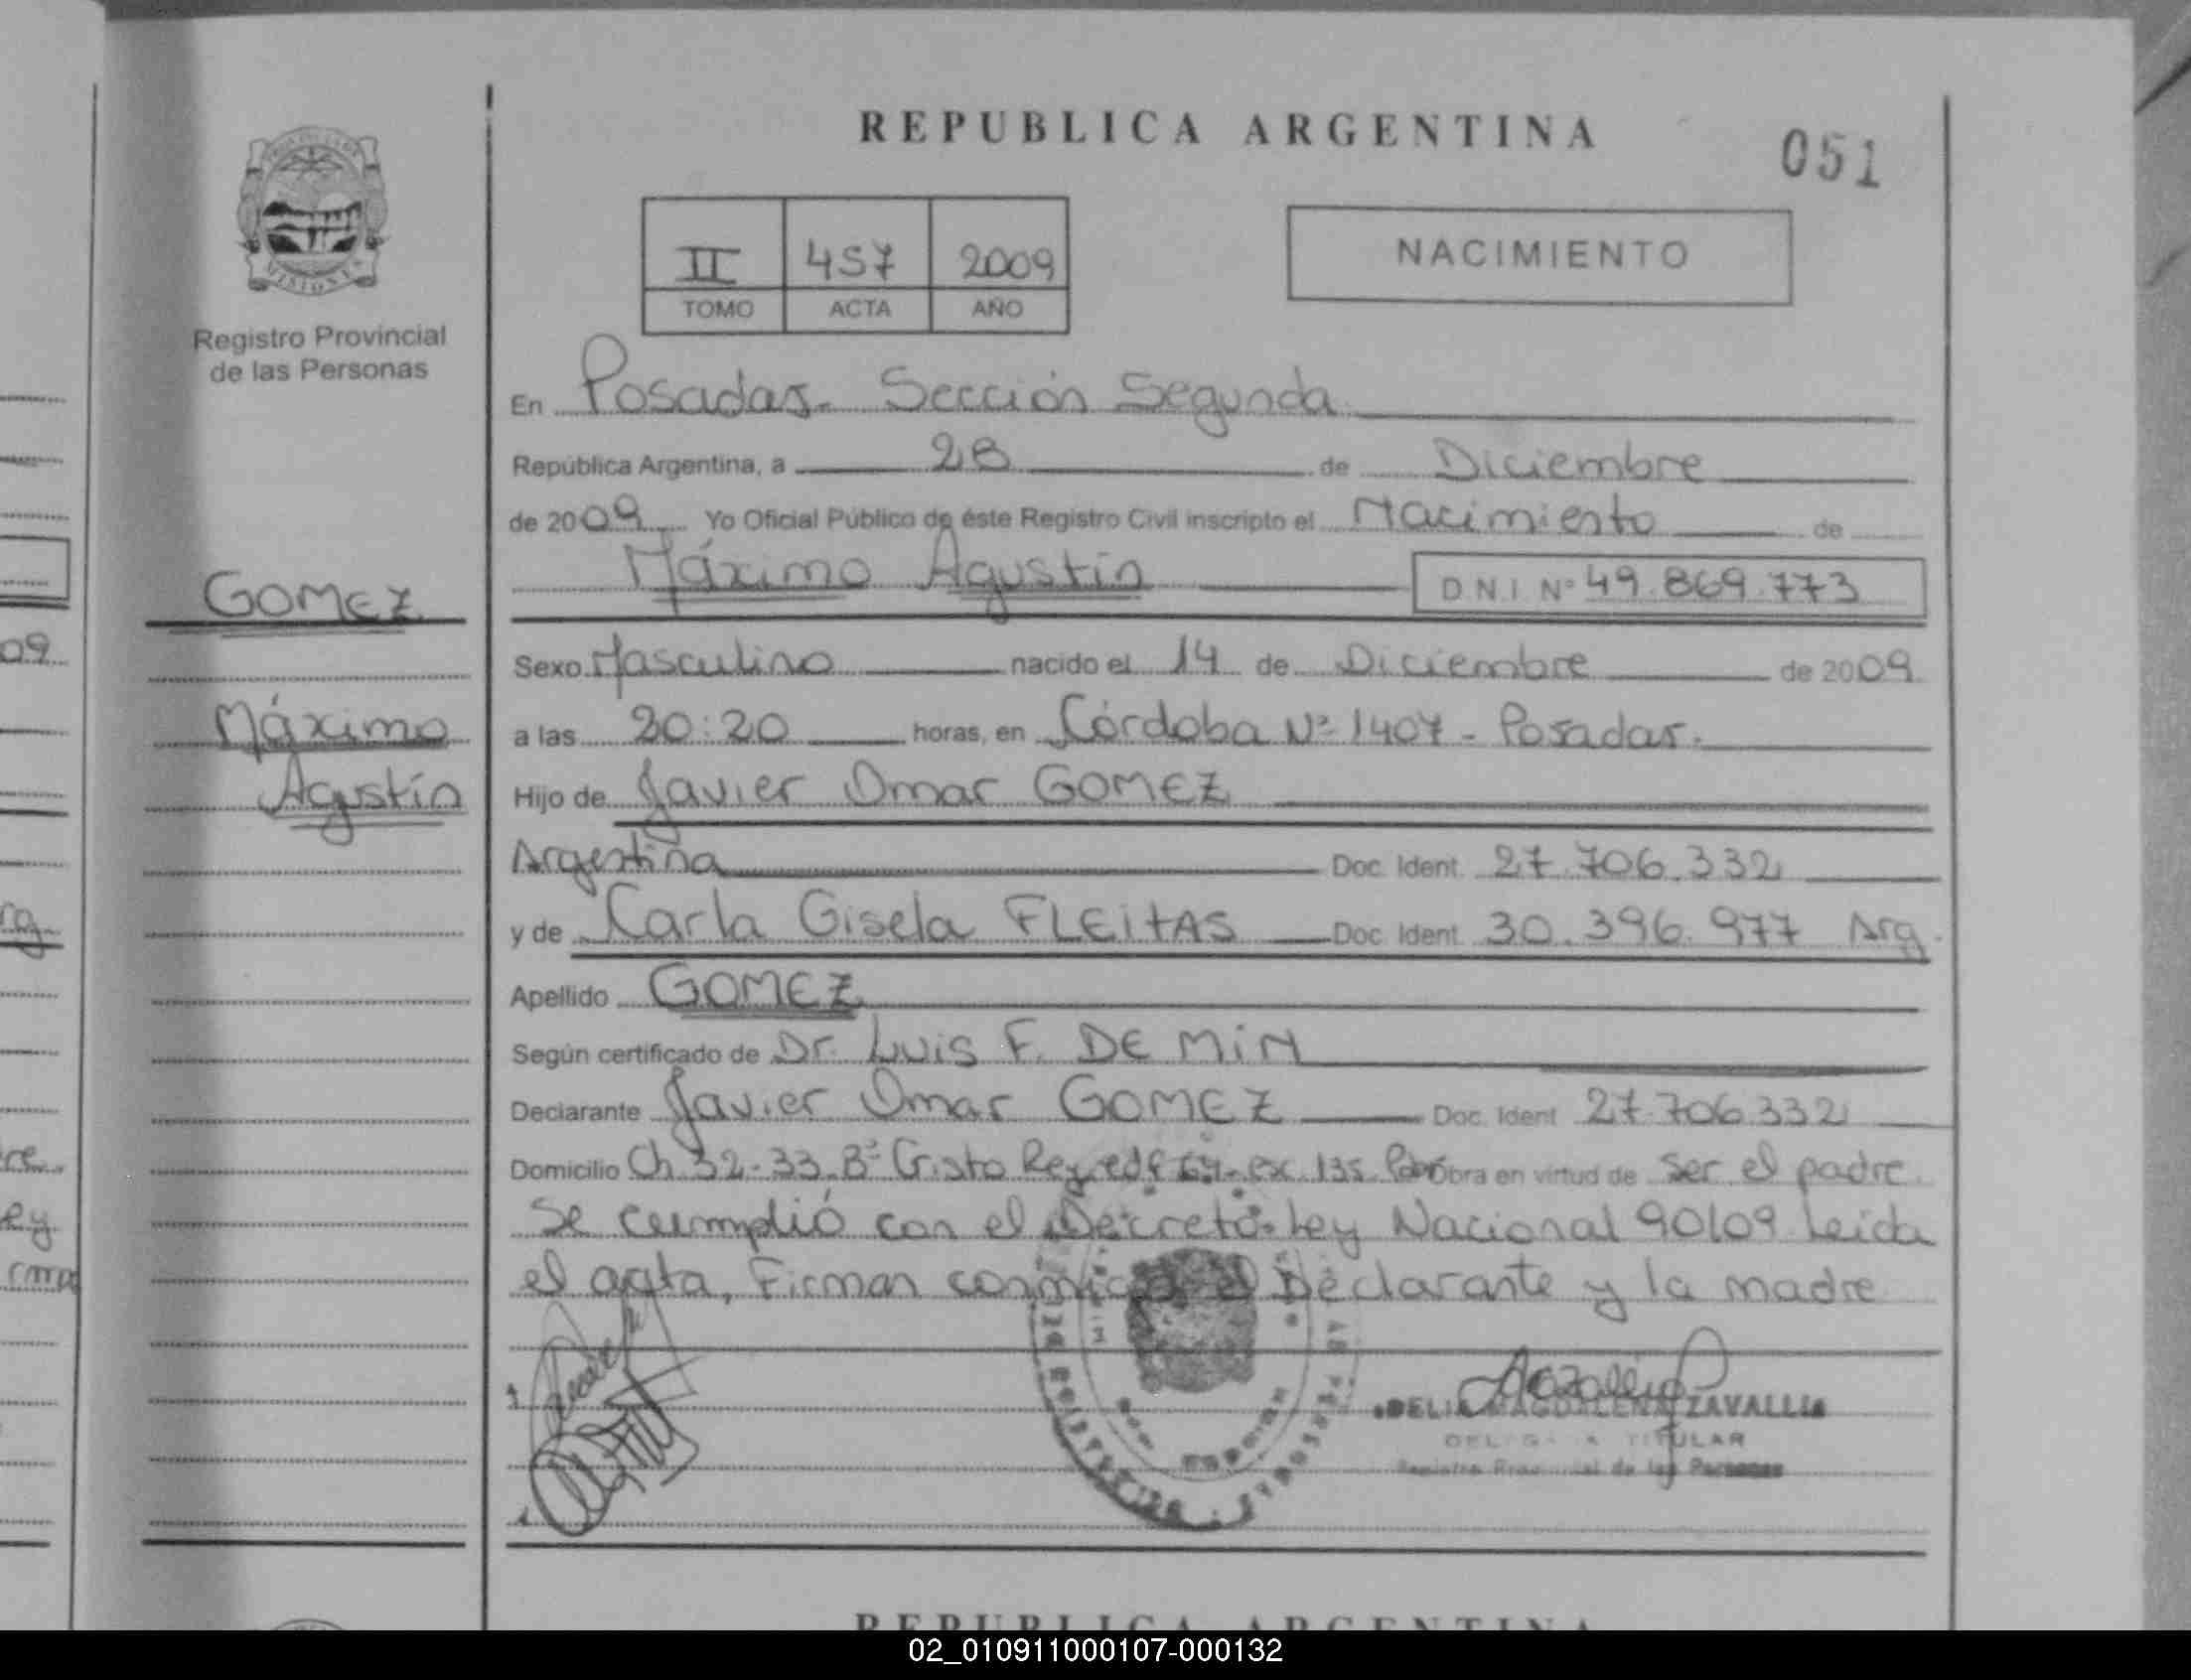 REPUBLICA ARGENTINA
051
II 457 2009
TOMO ACTA AÑO
NACIMIENTO
MISIONES
Registro Provincial
de las Personas
GOMEZ
Máximo
Agustín
En Posadas. Sección Segunda
República Argentina, a 28 de Diciembre
de 2009 Yo Oficial Público de éste Registro Civil inscripto el Nacimiento de
Máximo Agustín D.N.I. Nº 49.869.773
Sexo Masculino nacido el 14 de Diciembre de 2009
a las 20:20 horas, en Córdoba Nº 1407 - Posadas.
Hijo de Javier Omar GOMEZ
Argentina Doc. Ident. 27.706.332
y de Carla Gisela FLEITAS Doc. Ident. 30.396.977 Arg.
Apellido GOMEZ
Según certificado de Dr. Luis F. DE MIN
Declarante Javier Omar GOMEZ Doc. Ident 27.706.332
Domicilio Ch 32-33 Bº Cristo Rey 135 Obra en virtud de ser el padre
Se cumplió con el Decreto-Ley Nacional 90/09 Leida
el acta, Firman conmigo el Declarante y la madre
DELIA MAGDALENA ZAVALLIA
TITULAR
Registro Provincial de las Personas
REPUBLICA ARGENTINA
09
rg.
re.
ey
rma
02_010911000107-000132